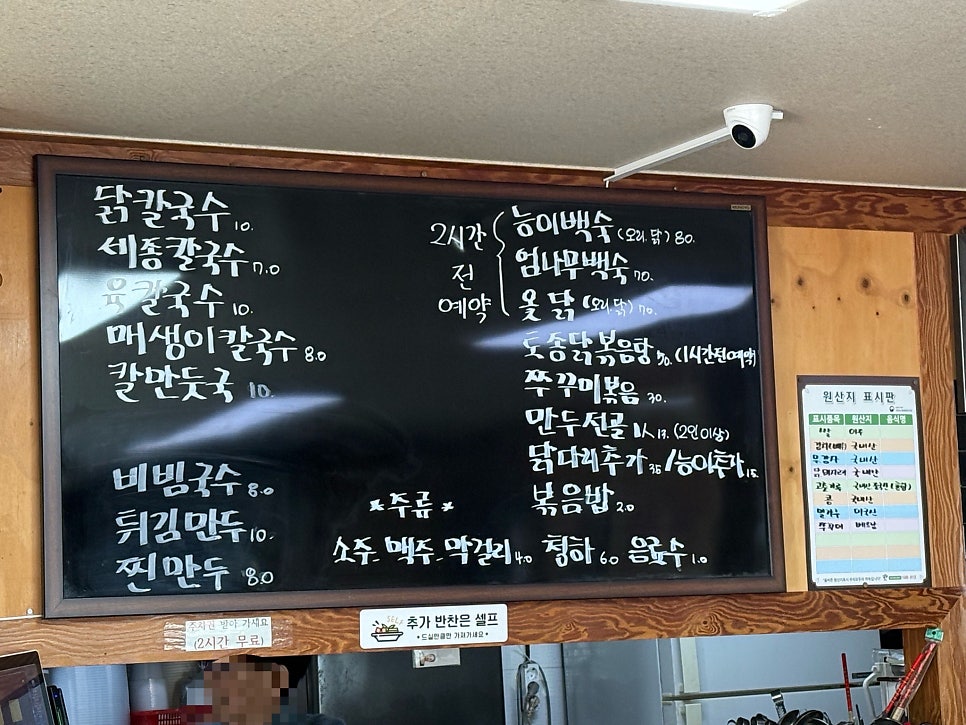 닭칼국수 10.
세종칼국수 7.0
육칼국수 10.
매생이칼국수 8.0
칼만둣국 10.
비빔국수 8.0
튀김만두 10.
찐만두 8.0
2시간
전
예약
능이백숙 (오리.닭) 80.
엄나무백숙 70.
옻닭 (오리.닭) 70.
토종닭볶음탕 70. (1시간전예약)
쭈꾸미볶음 30.
만두전골 1人 17. (2인이상)
닭다리추가 35 / 능이추가 15.
볶음밥 2.0
*주류*
소주_맥주_막걸리 4.0 청하 6.0 음료수 1.0
원산지 표시판
표시품목 원산지 음식명
쌀
국내산
국내산
국내산
콩 국내산
미국산
쭈꾸미 베트남
주차권 받아 가세요
(2시간 무료)
SELF
추가 반찬은 셀프
• 드실만큼만 가져가세요 •